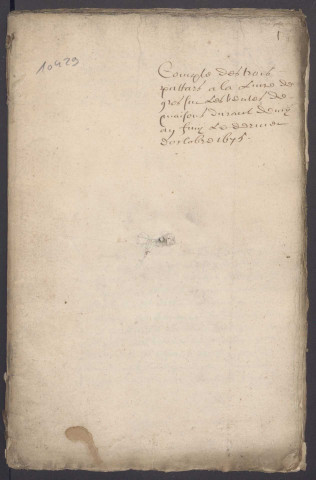 1
10429
Compte des trois
pattars a la Livre de
gros sur les ventes des
maisons durant deux
ans finy le dernier
d'octobre 1675.